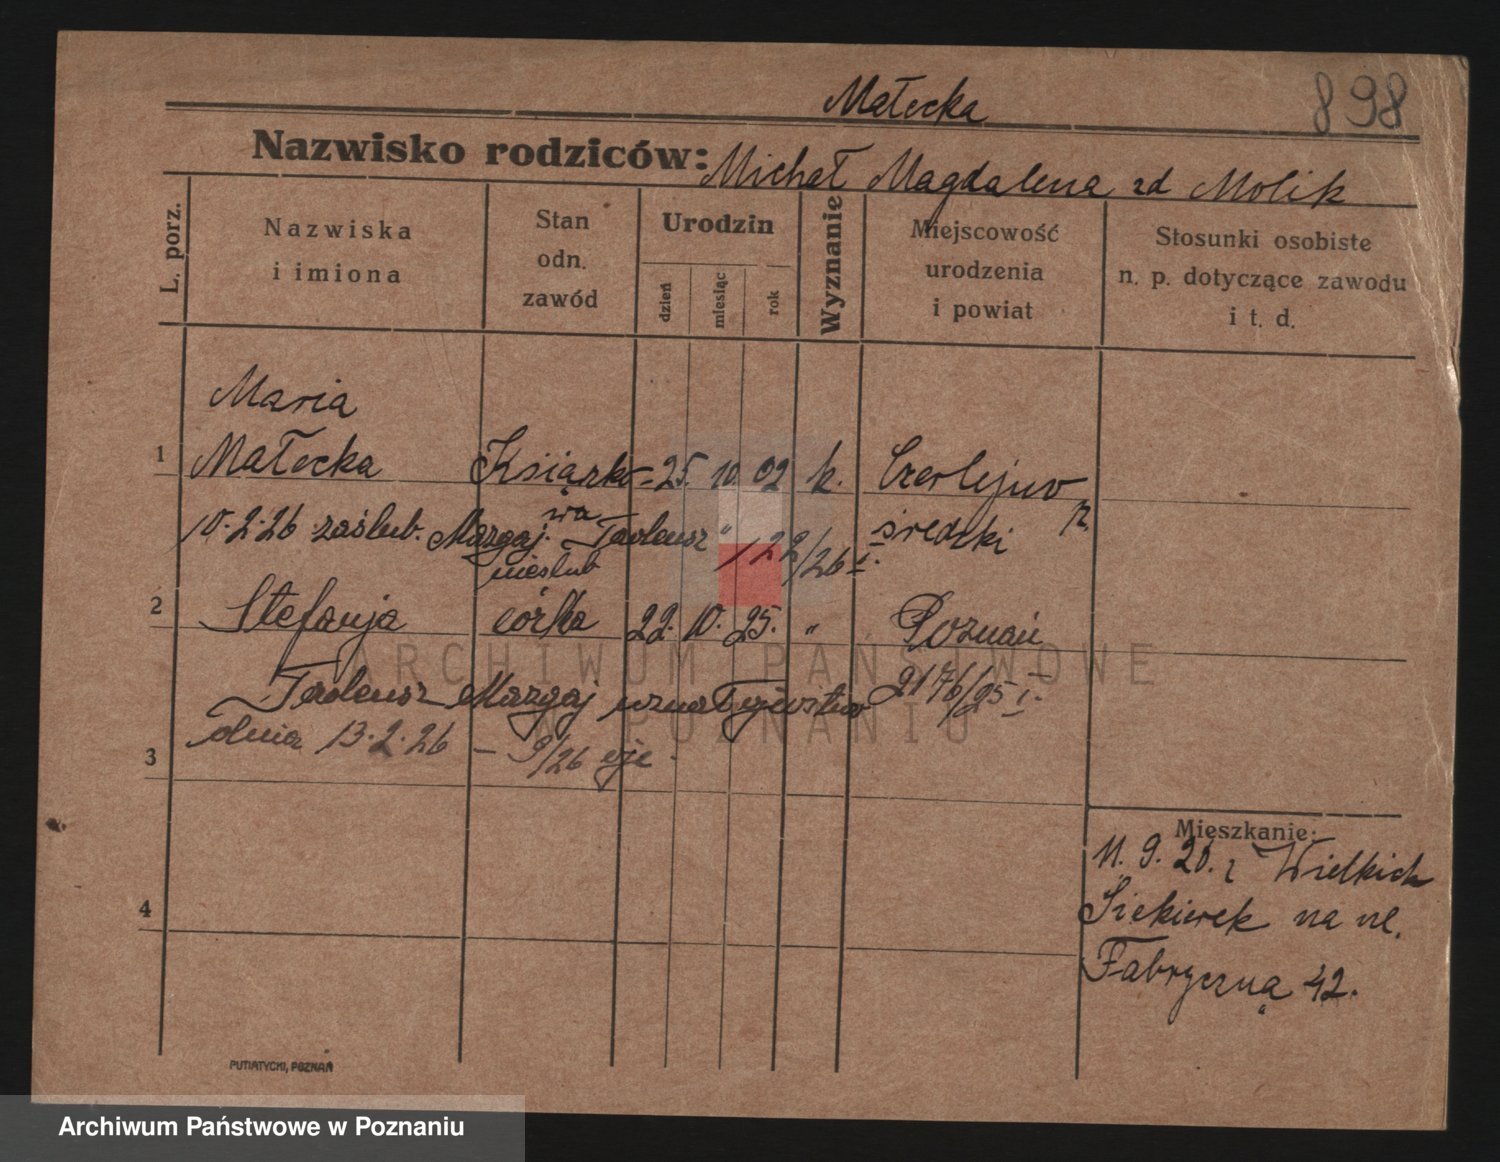 Małecka
898
Nazwisko rodziców: Michał Magdalena zd Molik
L. porz.
Nazwiska i imiona
Stan odn. zawód
Urodzin
dzień
miesiąc
rok
Wyznanie
Miejscowość urodzenia i powiat
Stosunki osobiste n. p. dotyczące zawodu i t. d.
Maria
1 Małecka 25. 10. 02 k. Czerlejno
10.2.26 zaślub. Tadeusz 122/26 I. średzki
nieślub
2 Stefanja córka 22. 10. 25. " Poznań
Tadeusz 2176/25 I.
dnia 13.2.26 – 9/26
3
Mieszkanie:
11. 9. 20. z Wielkich
4
Siekierek na ul.
Fabryczną 42.
PUTIATYCKI, POZNAŃ
ARCHIWUM PAŃSTWOWE
W POZNANIU
Archiwum Państwowe w Poznaniu